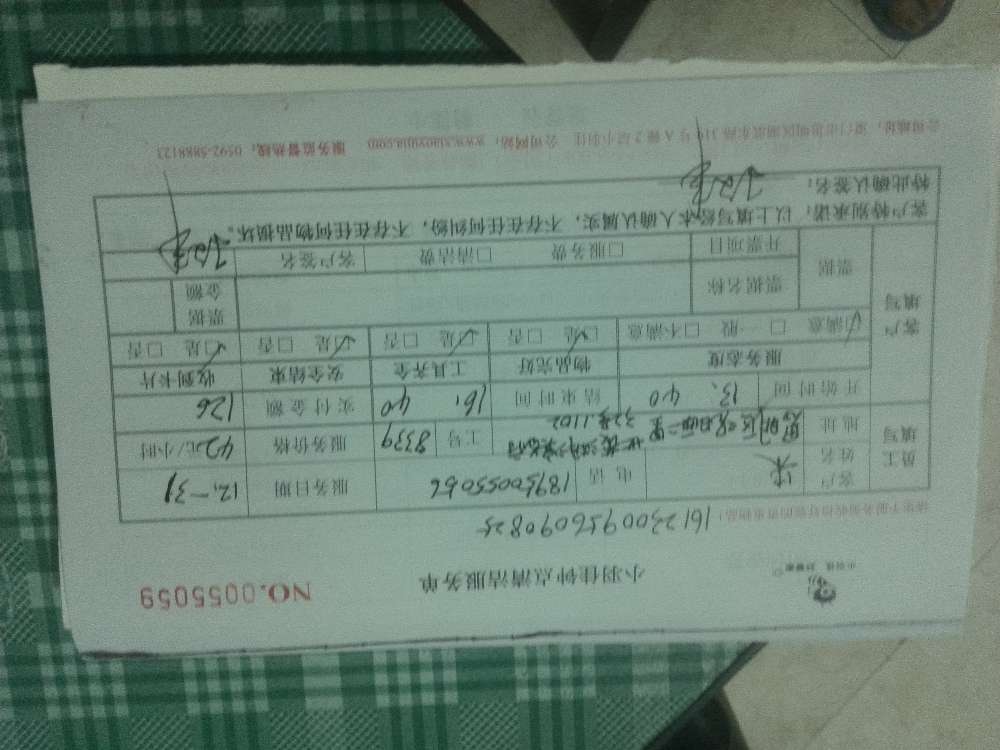 小羽佳钟点清洁服务单
NO.0055059
161230095609082
员工填写
客户姓名 宋 电话 18950055056 服务日期 12.-31
地址 思明区 二里 32号1102 工号 8339 服务价格 42元/小时
开始时间 13、40 结束时间 16:40 实付金额 126
客户填写
服务态度 物品完好 工具齐全 安全结束 收到卡片
☑满意 □一般 □不满意 ☑是 □否 ☑是 □否 ☑是 □否 ☑是 □否
票据 票据名称 票据金额
开票项目 □服务费 □清洁费 客户签名
客户特别承诺:以上填写经本人确认属实,不存在任何纠纷,不存在任何物品损坏。
特此确认签名:
公司网站:www.xiaoyujia.com 服务监督热线:0592-5888123